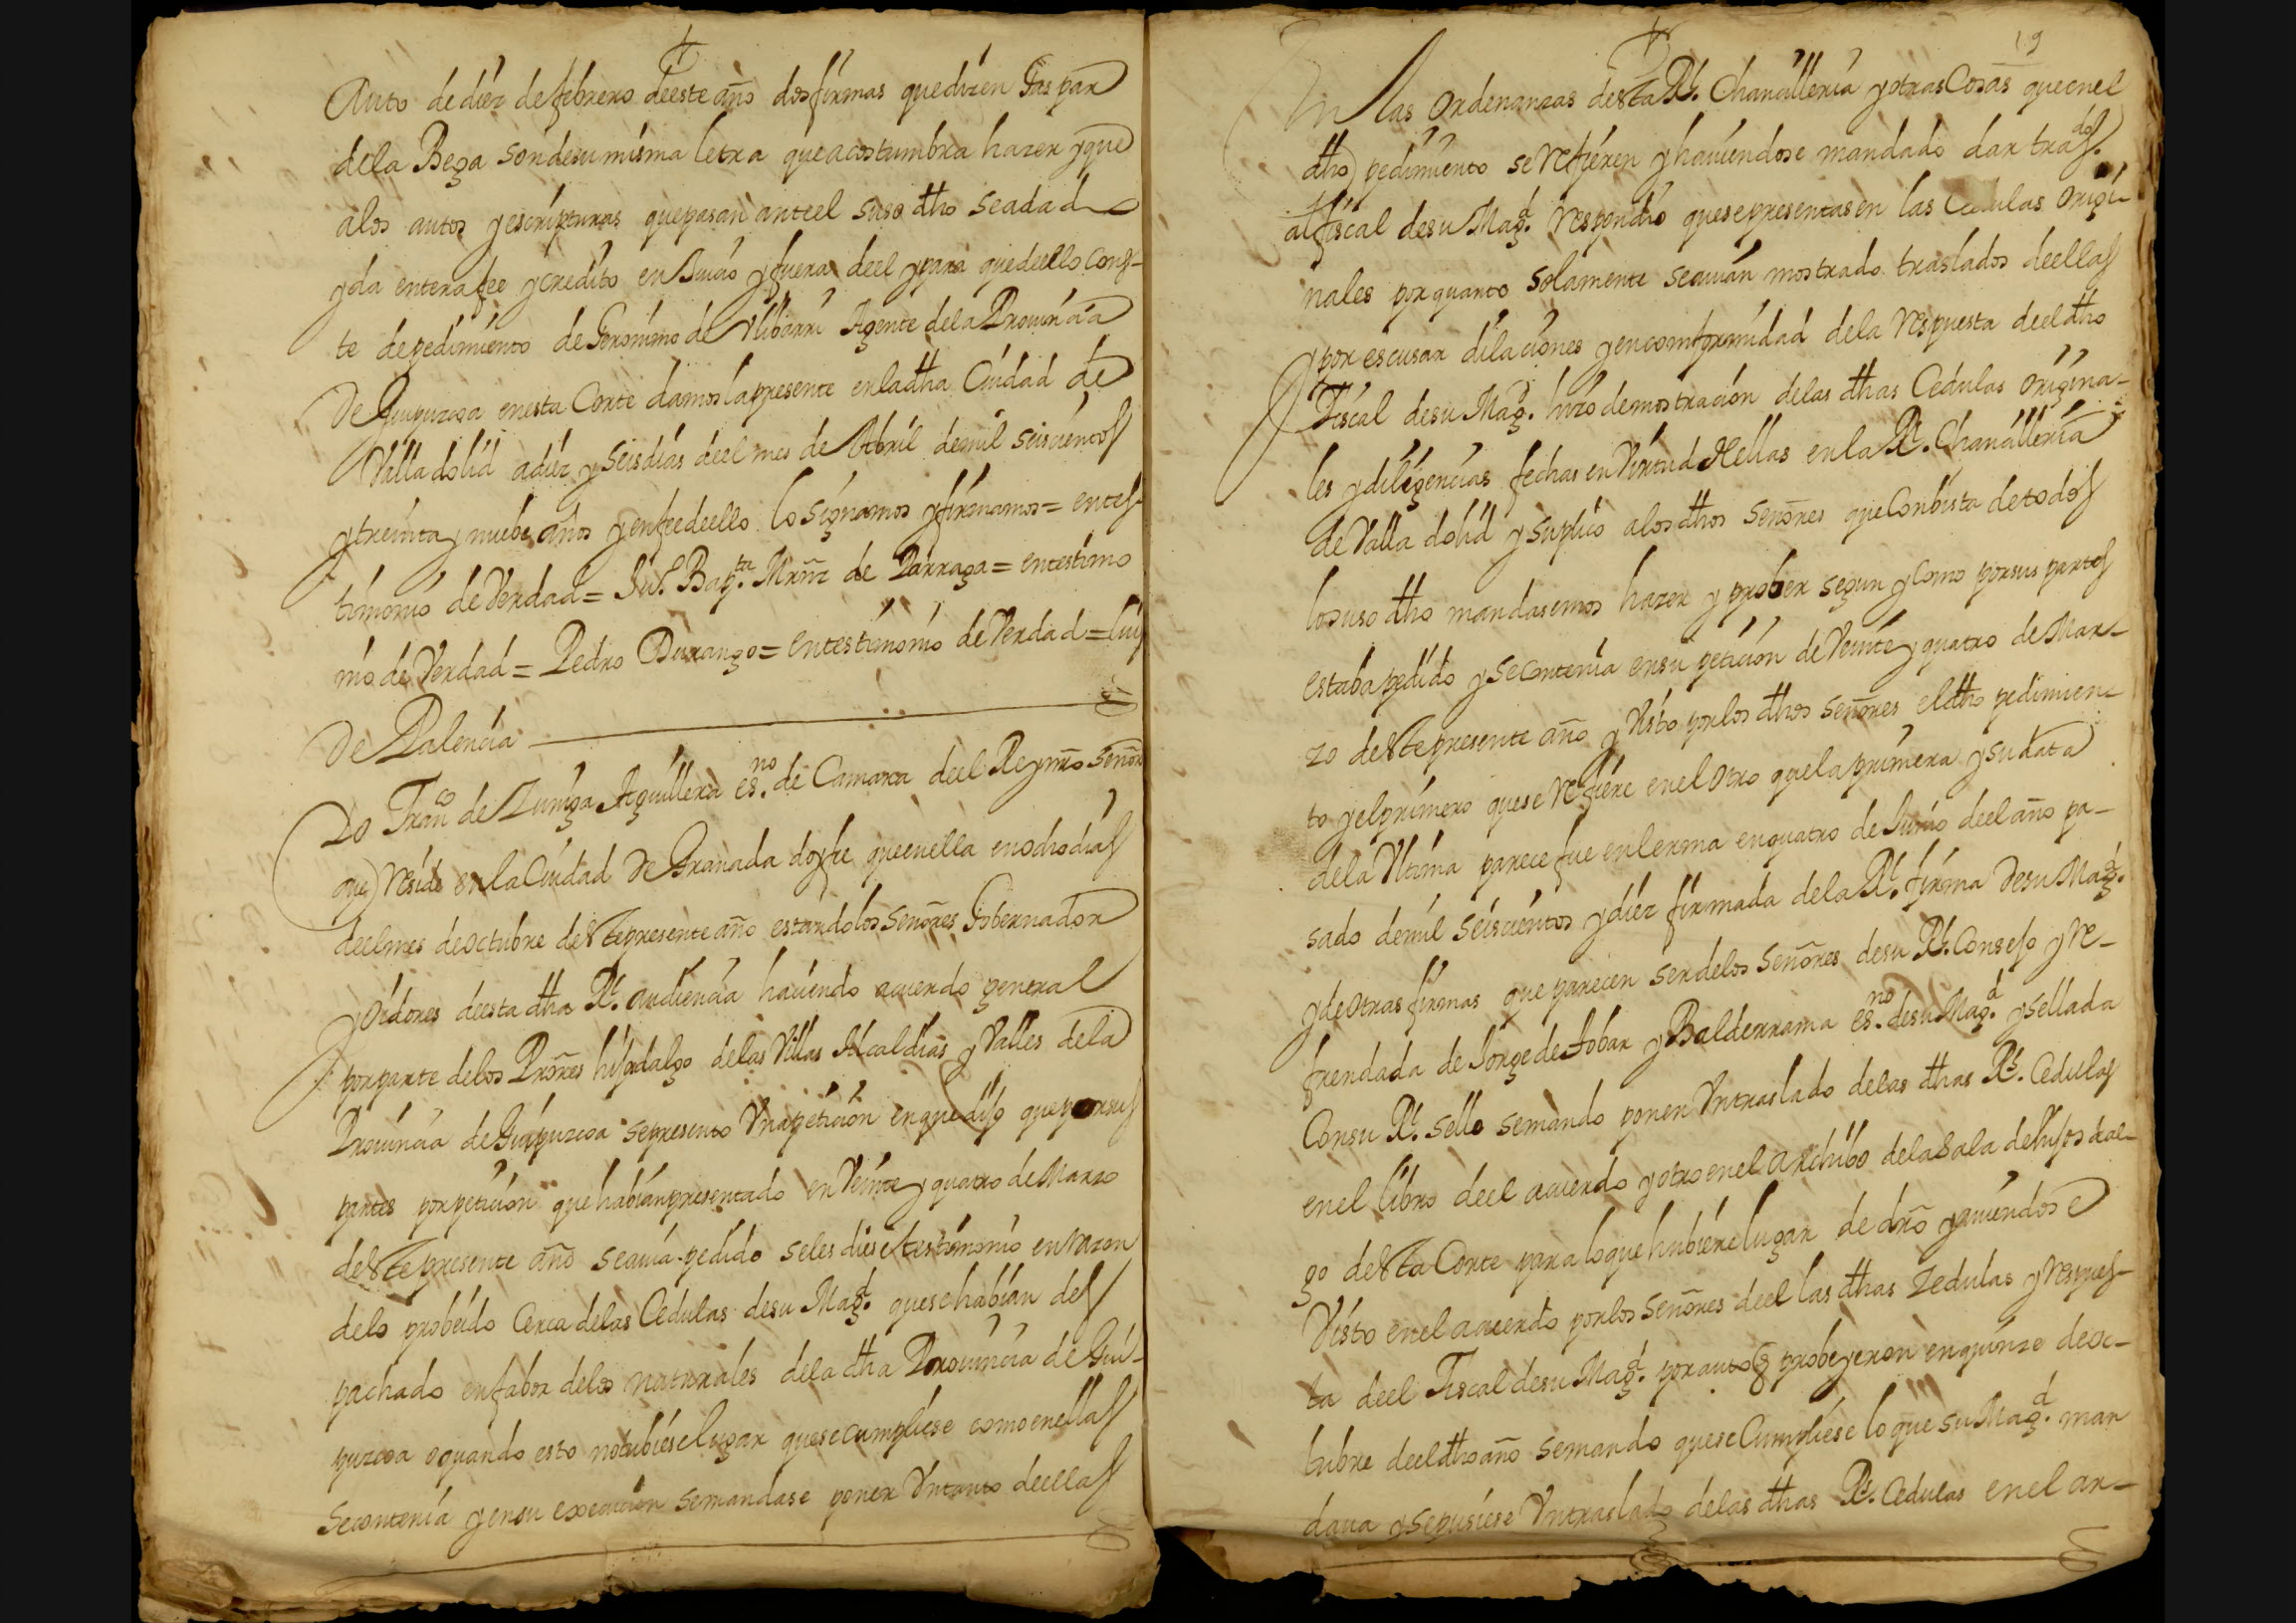 Auto de diez de febrero deeste año dos firmas que dizen Gaspar
dela Bega son desu misma letra que acostumbra hazer y que
alos autos y escripturas que pasan anteel suso dho seadad
y da entera fee y credito en Juicio y fuera deel y para que deello cons-
te de pedimiento de Geronimo de Ulibarri Agente dela Prouincia
De Guipuzcoa enesta Corte damos la presente enla dha Ciudad de
Valladolid adiez y seis dias deel mes de Abril demil seiscientos
y treinta y nuebe años y enfee deello lo signamos y firmamos = entes-
timonio de Verdad = Ju.º Bap.ta Mrñz de Parraga = entestimo
nio de Verdad = Pedro Durango = entestimonio de Verdad = Luis
De Palencia
Yo Fran.co de Zuniga Aguillera es.no de Camara deel Rey nro señor
que Resido enla Ciudad De Granada doy fee queenella enocho dias
deelmes deoctubre deste presente año estando los señores Gobernador
y oidores deesta dha Rl. audiencia hauiendo acuerdo general
por parte delos Prores hijosdalgo delas Villas Alcaldias y Valles dela
Prouincia de Guipuzcoa sepresento Una peticion enque dijo que por sus
partes por peticion que habian presentado en Veinte y quatro de Marzo
deste presente año seauia pedido seles diese testimonio en razon
delo probeido Cerca delas Cedulas desu Magd. que se habian des
pachado enfabor delos naturales dela dha Prouincia de Gui-
puzcoa oquando esto notubiese lugar quese cumpliese como enellas
Secontenia y ensu execucion semandase poner Untanto deellas
19
En las Ordenanzas desta Rl. Chancilleria y otras Cosas queenel
dho pedimiento se Refieren y hauiendose mandado dar trasdo.
alfiscal desu Magd. Respondio quesepresentasen las Cedulas Origi-
nales por quanto solamente seauian mostrado traslados deellas
y por escusar dilaciones y encomformidad dela Respuesta deeldho
Fiscal desu Magd. hizo demostracion delas dhas Cedulas Origina-
les y diligencias fechas en Virtud dellas enla Rl. Chancilleria
de Valladolid y suplico alos dhos señores que Conbista detodos
losuso dho mandasemos hazer y prober segun y Como porsus partes
estaba pedido y secontenia ensu peticion de Veinte y quatro de Mar-
zo deste presente año y Visto por los dhos señores eldho pedimien-
to y elprimero quese Refiere enel otro quela primera y su data
dela Ultima parece fue enlerma enquatro de Junio deel año pa-
sado demil seiscientos y diez firmada dela Rl. firma Desu Magd.
y deotras firmas que parecen ser delos señores desu Rl. Consejo y Re-
frendada de Jorge detobar y Balderrama es.no desu Magd. y sellada
Consu Rl. sello semando poner Untraslado delas dhas Rs. Cedulas
enel libro deel acuerdo y otro enel archibo delaSala dehijosdal-
go desta Corte para loque hubiere lugar de dro y auiendose
Visto enel acuerdo porlos señores deel las dhas Zedulas y respues-
ta deel Fiscal desu Magd. por auto q probeyeron enquinze deoc-
tubre deeldho año semando quese Cumpliese lo que su Magd. man
daua y sepusiese Untraslado delas dhas Rs. Cedulas enel ar-